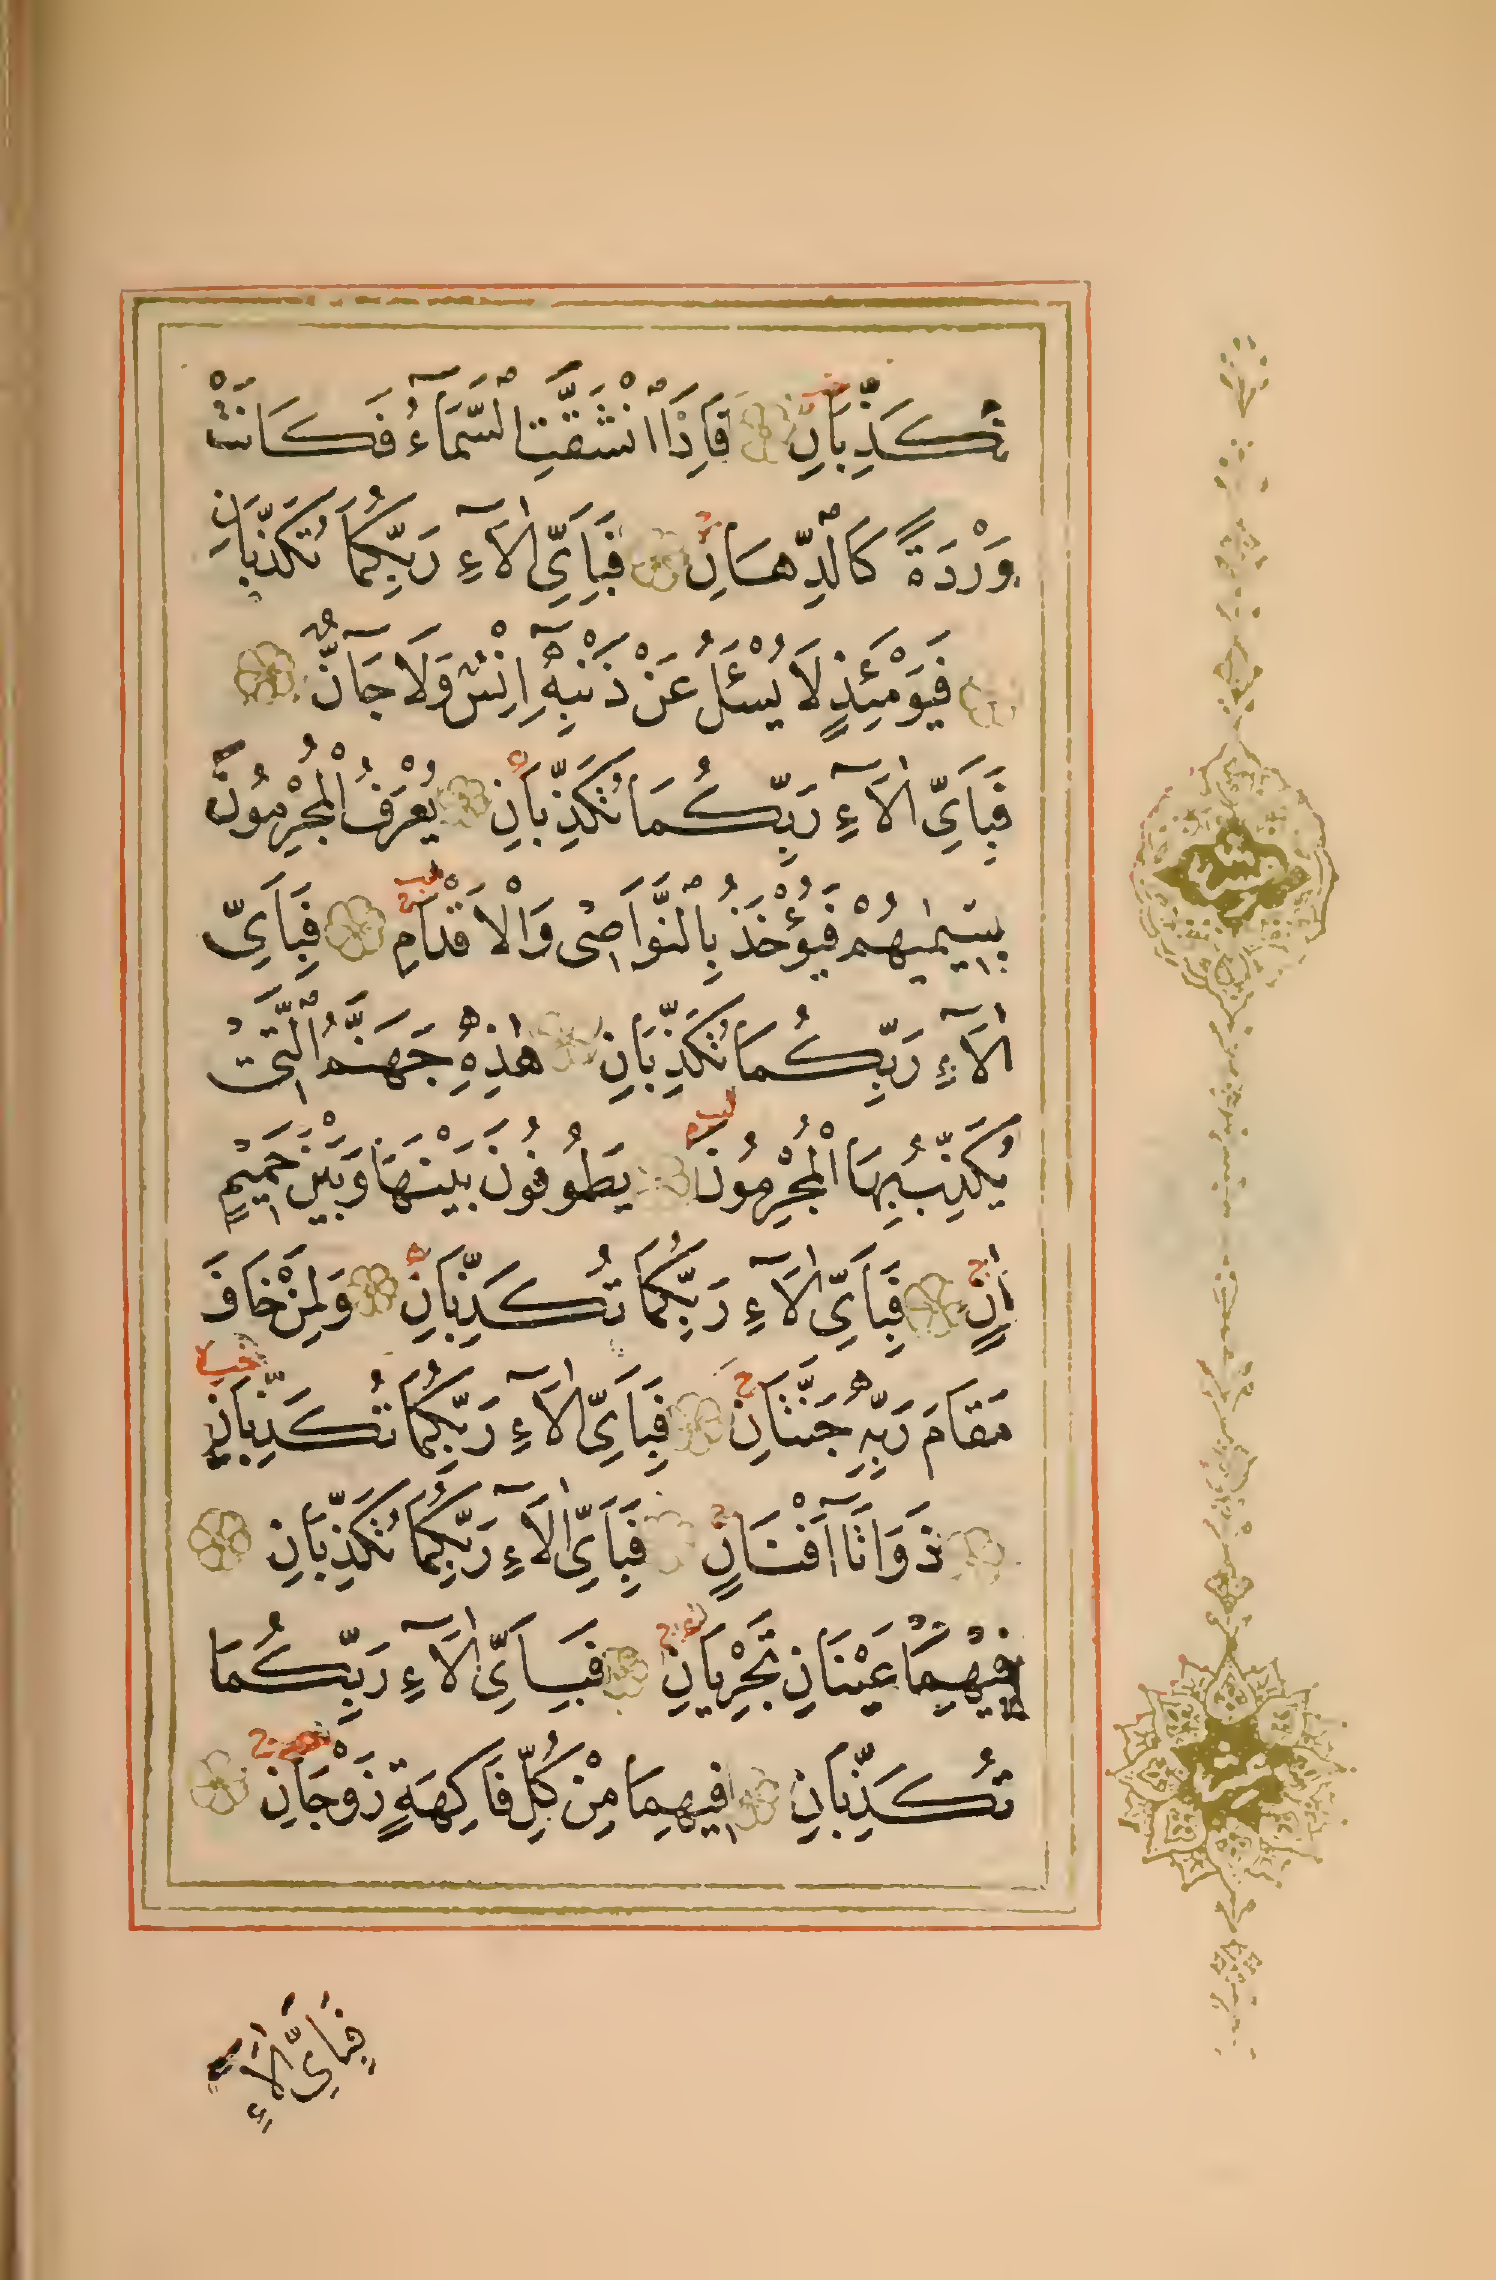 تُكَذِّبَانِ فَاِذَا انْشَقَّتِ السَّمَآءُ فَكَانَتْ
وَرْدَةً كَالدِّهَانِ فَبِاَيِّ اٰلَآءِ رَبِّكُمَا تُكَذِّبَانِ
فَيَوْمَئِذٍ لَا يُسْئَلُ عَنْ ذَنْبِهٖٓ اِنْسٌ وَلَا جَآنٌّ
فَبِاَيِّ اٰلَآءِ رَبِّكُمَا تُكَذِّبَانِ يُعْرَفُ الْمُجْرِمُونَ
بِسِيمٰيهُمْ فَيُؤْخَذُ بِالنَّوَاصِى وَالْاَقْدَامِ فَبِاَيِّ
اٰلَآءِ رَبِّكُمَا تُكَذِّبَانِ هٰذِهٖ جَهَنَّمُ الَّتِى
يُكَذِّبُ بِهَا الْمُجْرِمُونَ يَطُوفُونَ بَيْنَهَا وَبَيْنَ حَمِيمٍ
اٰنٍ فَبِاَيِّ اٰلَآءِ رَبِّكُمَا تُكَذِّبَانِ وَلِمَنْ خَافَ
مَقَامَ رَبِّهٖ جَنَّتَانِ فَبِاَيِّ اٰلَآءِ رَبِّكُمَا تُكَذِّبَانِ
ذَوَاتَآ اَفْنَانٍ فَبِاَيِّ اٰلَآءِ رَبِّكُمَا تُكَذِّبَانِ
فِيهِمَا عَيْنَانِ تَجْرِيَانِ فَبِاَيِّ اٰلَآءِ رَبِّكُمَا
تُكَذِّبَانِ فِيهِمَا مِنْ كُلِّ فَاكِهَةٍ زَوْجَانِ
فَبِاَيِّ اٰلَآءِ